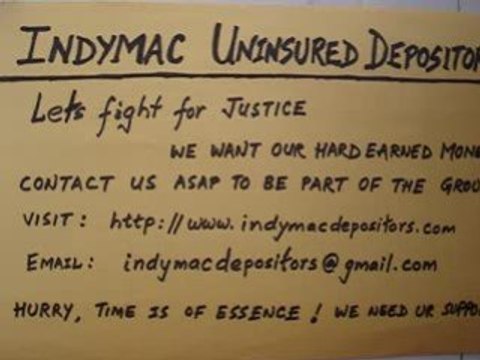 INDYMAC UNINSURED DEPOSITOR
Lets fight for JUSTICE
WE WANT OUR HARD EARNED MONE
CONTACT US ASAP TO BE PART OF THE GROU
VISIT: http://www.indymacdepositors.com
EMAIL: indymacdepositors@gmail.com
HURRY, TIME IS OF ESSENCE! WE NEED UR SUPPO